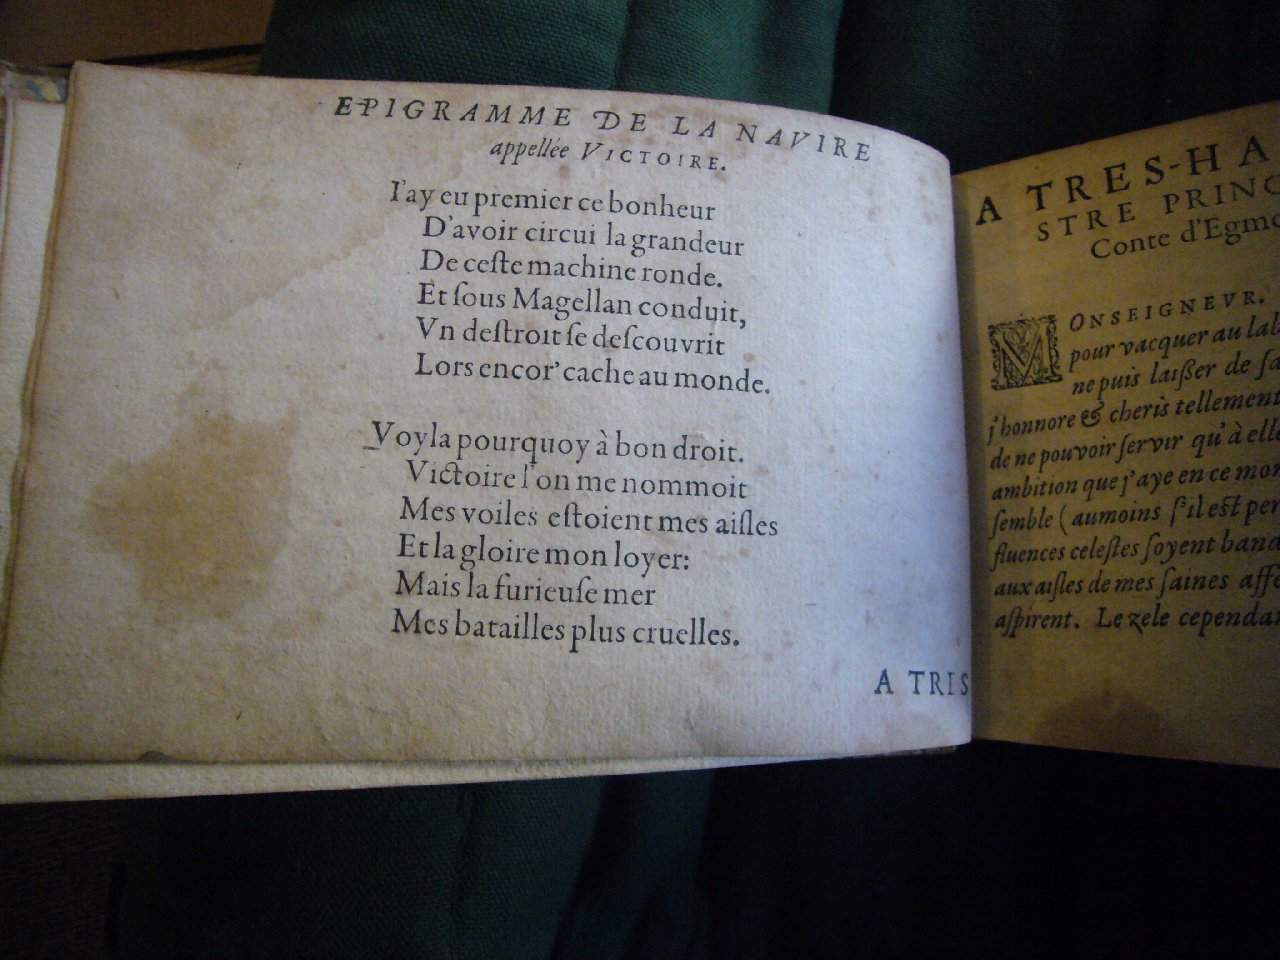 EPIGRAMME DE LA NAVIRE
appellée VICTOIRE.
I'ay eu premier ce bonheur
D'avoir circui la grandeur
De ceſte machine ronde.
Et ſous Magellan conduit,
Vn deſtroit ſe deſcouvrit
Lors encor' cache au monde.
Voyla pourquoy à bon droit.
Victoire l'on me nommoit
Mes voiles eſtoient mes aiſles
Et la gloire mon loyer:
Mais la furieuſe mer
Mes batailles plus cruelles.
A TRES
A TRES-HA
STRE PRINC
Conte d'Egmo
MONSEIGNEVR.
pour vacquer au lab
ne puis laiſſer de ſa
j'honnore & cheris tellement
de ne pouvoir ſervir qu'à elle
ambition que j'aye en ce mon
ſemble (aumoins ſ'il eſt per
fluences celeſtes ſoyent band
aux aiſles de mes ſaines affe
aſpirent. Le zele cependan